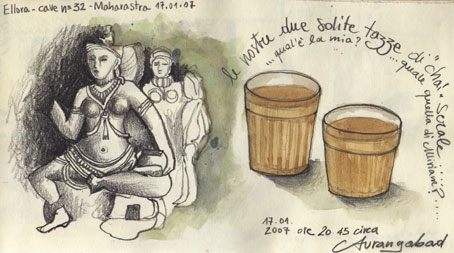 Ellora - cave n° 32 - Maharastra 17.01.07
le nostre due solite tazze di "chai" serale...
...qual'è la mia?...
...quale quella di Miriam?...
17.01.
2007 ore 20.45 circa
Aurangabad